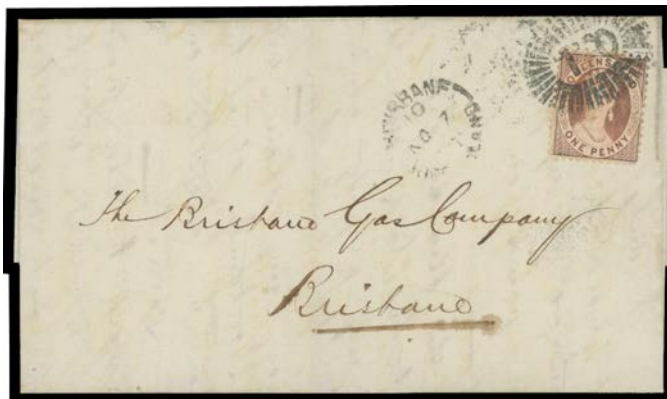 BRISBANE
QUEENSLAND
ONE PENNY
The Brisbane Gas Company
Brisbane